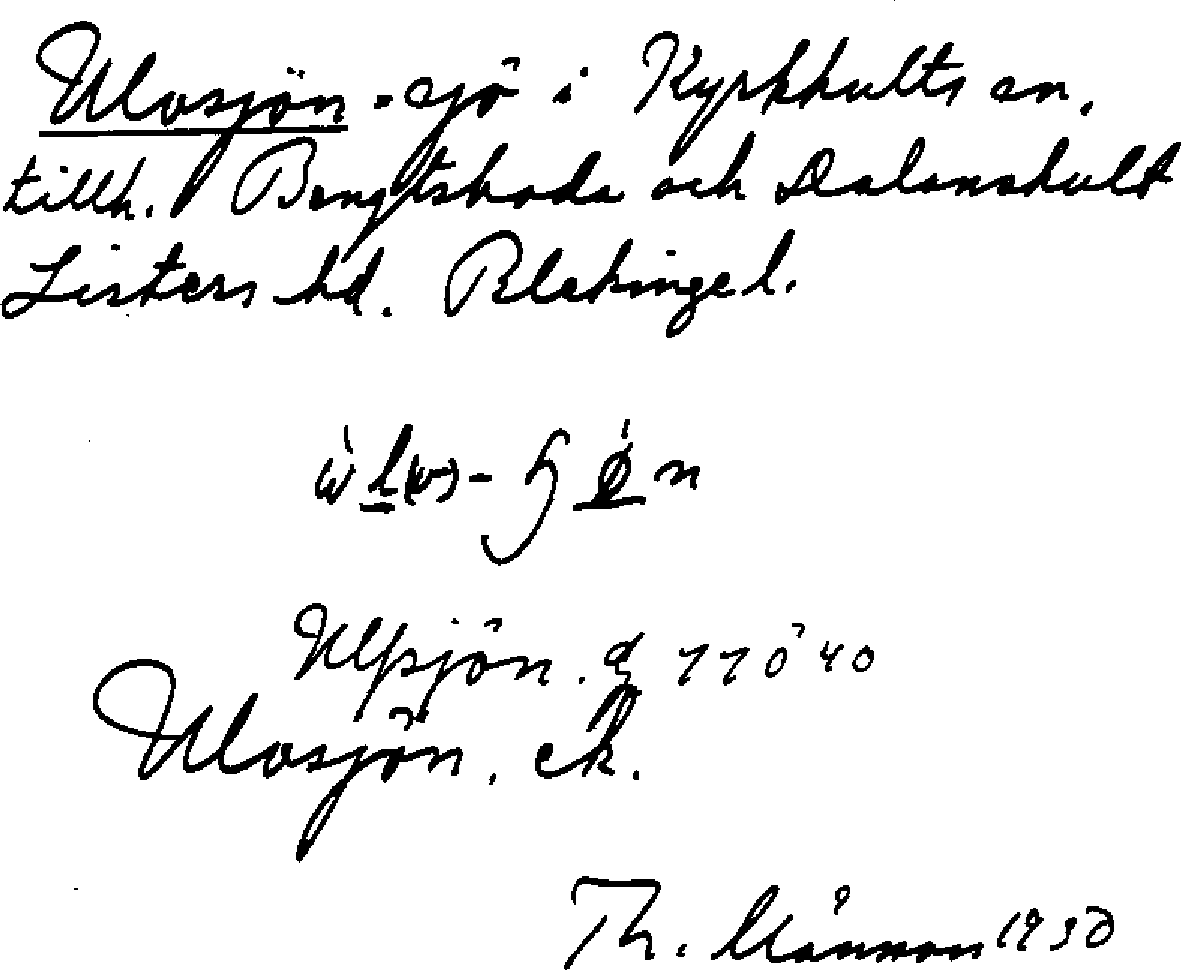 Ulvsjön - sjö i Kyrkhults sn,
tillh. Bengtsboda och Dalanshult
Listers hd. Blekinge l.
Ulfsjön. 11ö 40
Ulvsjön, ek.
Th. Månsson 1930